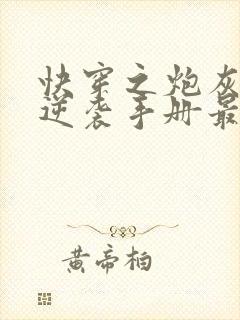 快穿之炮灰
逆袭手册最
黄帝柏